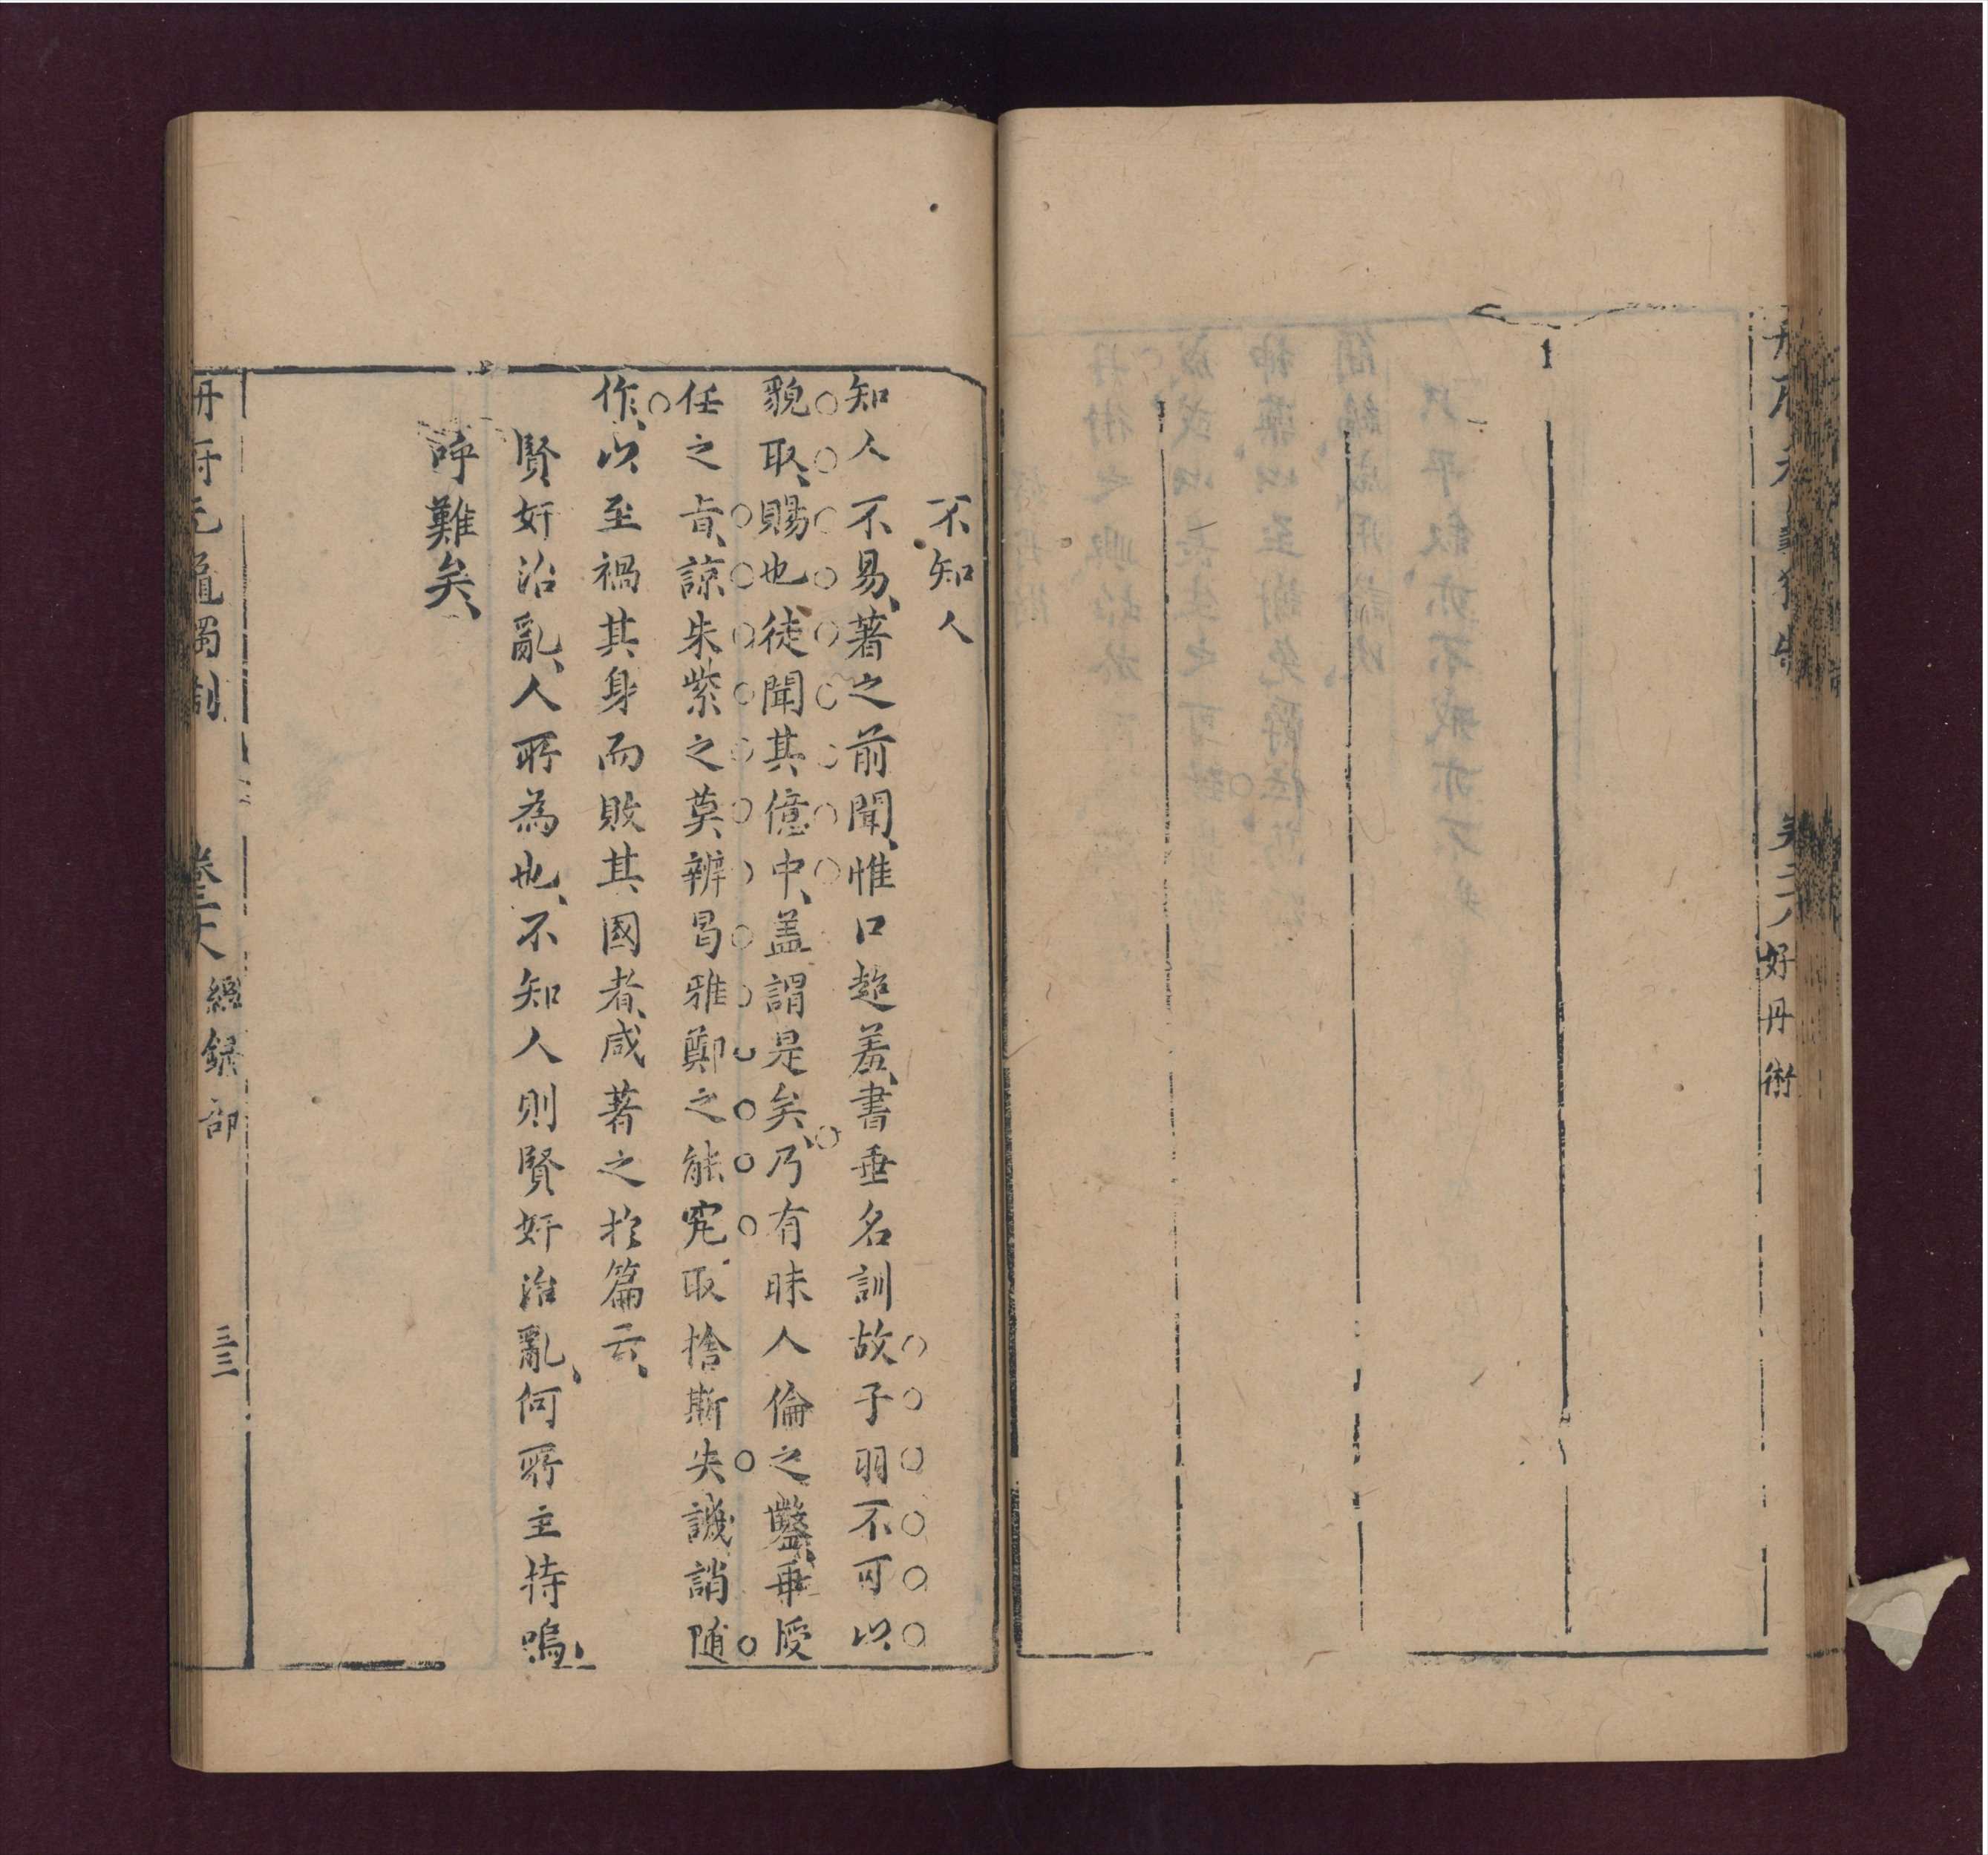 好丹術
不知人
知人不易、著之前聞、惟口起羞、書垂名訓故子羽不可以
貌取、賜也徒聞其億中、盖謂是矣、乃有昧人倫之鑒、乖授
任之旨、諒朱紫之莫辨曷雅鄭之能究取捨斯失譏誚随
作、以至禍其身而敗其國者、咸著之於篇云、
賢奸治亂、人所為也、不知人則賢奸治亂、何所主持嗚
呼難矣、
冊府元龜獨制 卷三十八 總錄部 三三